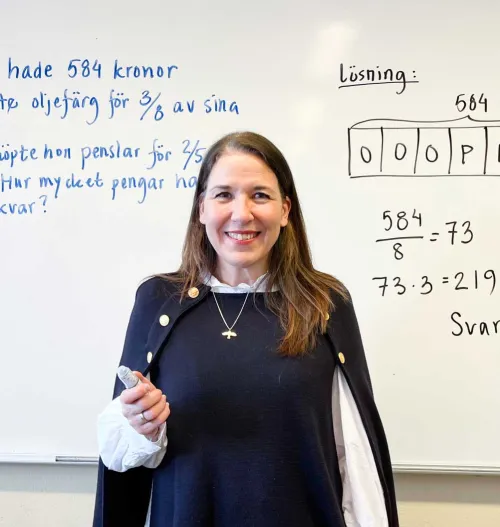 hade 584 kronor
oljefärg för 3/8 av sina
köpte hon penslar för 2/5
Hur mycket pengar ha
kvar?
Lösning:
584
O O O P
584/8 = 73
73·3 = 219
Svar